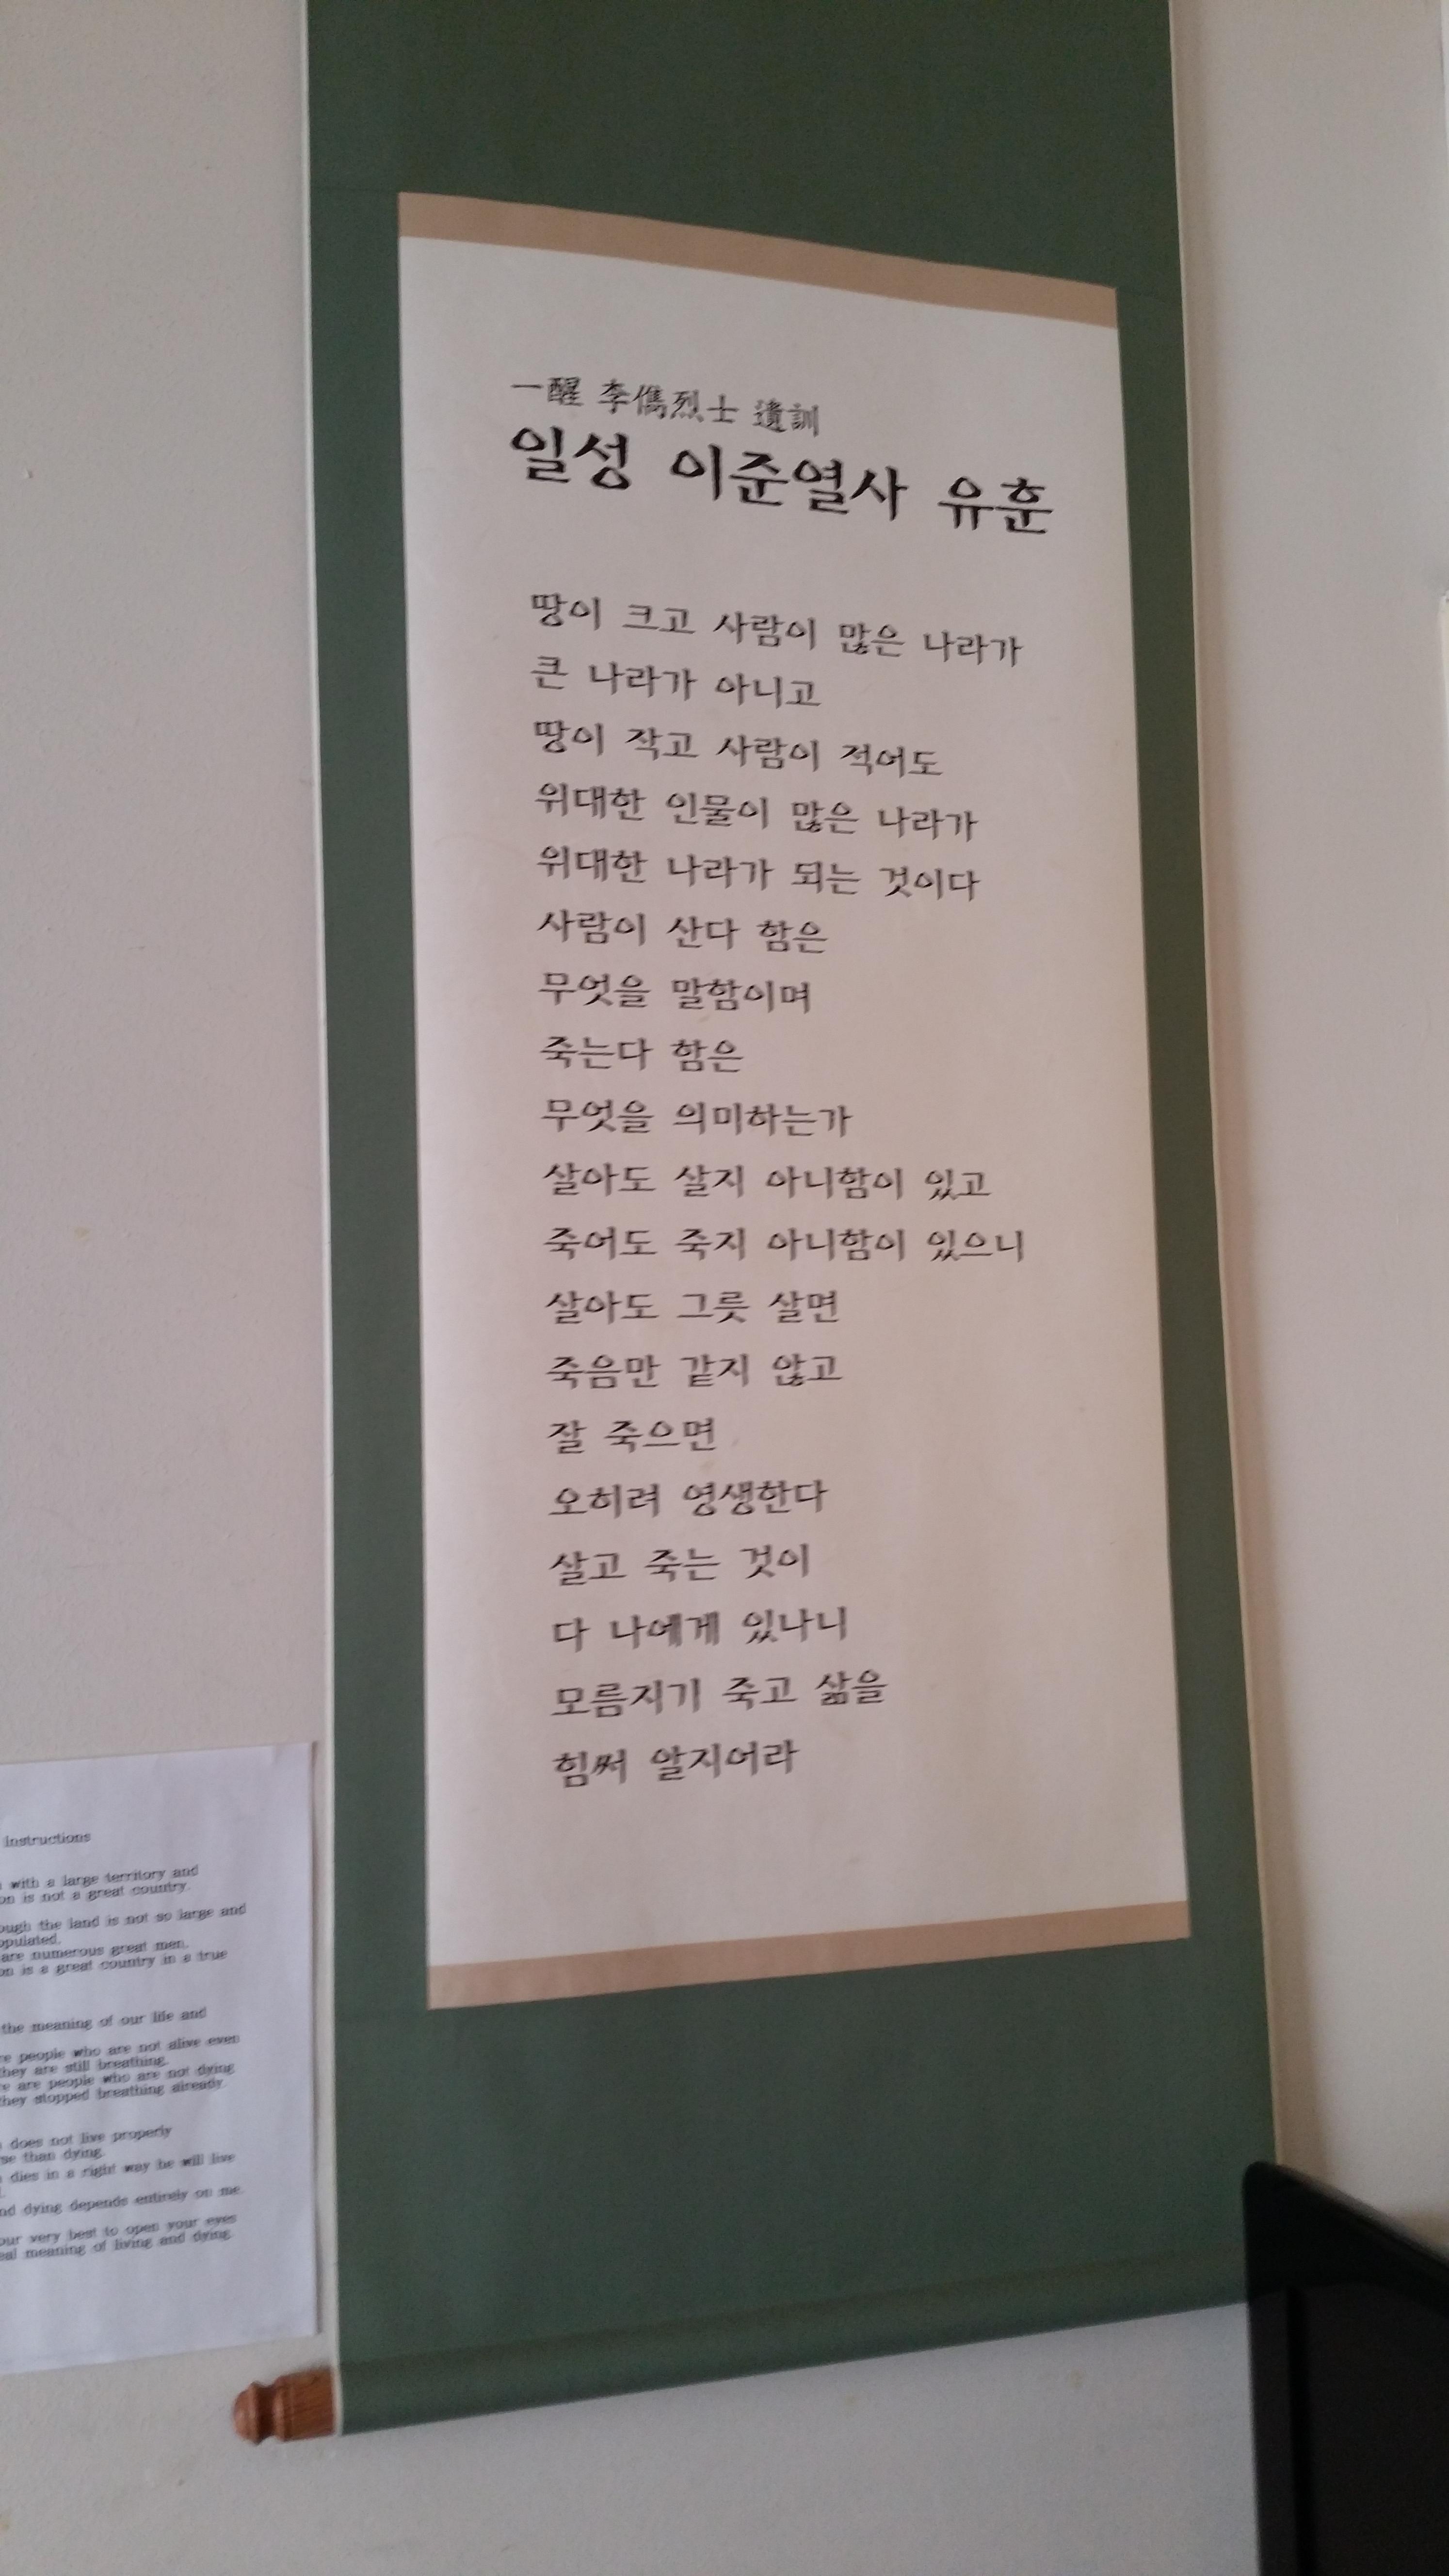 一醒 李儁烈士 遺訓
일성 이준열사 유훈
땅이 크고 사람이 많은 나라가
큰 나라가 아니고
땅이 작고 사람이 적어도
위대한 인물이 많은 나라가
위대한 나라가 되는 것이다
사람이 산다 함은
무엇을 말함이며
죽는다 함은
무엇을 의미하는가
살아도 살지 아니함이 있고
죽어도 죽지 아니함이 있으니
살아도 그릇 살면
죽음만 같지 않고
잘 죽으면
오히려 영생한다
살고 죽는 것이
다 나에게 있나니
모름지기 죽고 삶을
힘써 알지어라
instructions
with a large territory and
is not a great country.
the land is not so large and
are numerous great men.
is a great country in a true
the meaning of our life and
people who are not alive even
they are still breathing.
are people who are not dying
they stopped breathing already.
does not live properly
than dying.
dies in a right way he will live
dying depends entirely on me.
very best to open your eyes
meaning of living and dying.